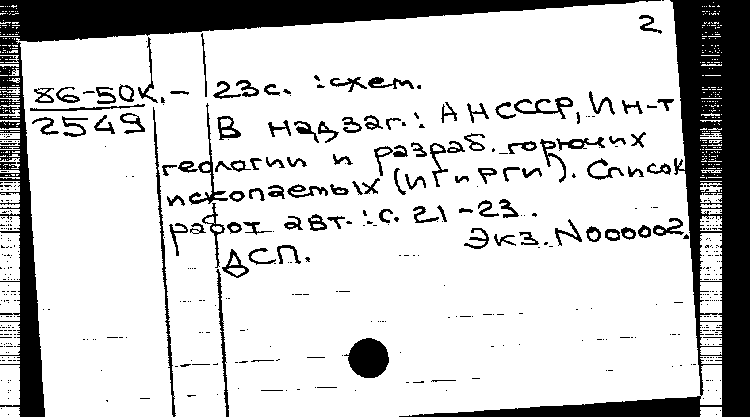 2
86-50к. – 23с. : схем.
2549 В надзаг.: АН СССР, Ин-т
геологии и разраб. горючих
ископаемых (ИГиРГИ). Список
работ авт.: с. 21-23.
Экз. N000002.
ДСП.